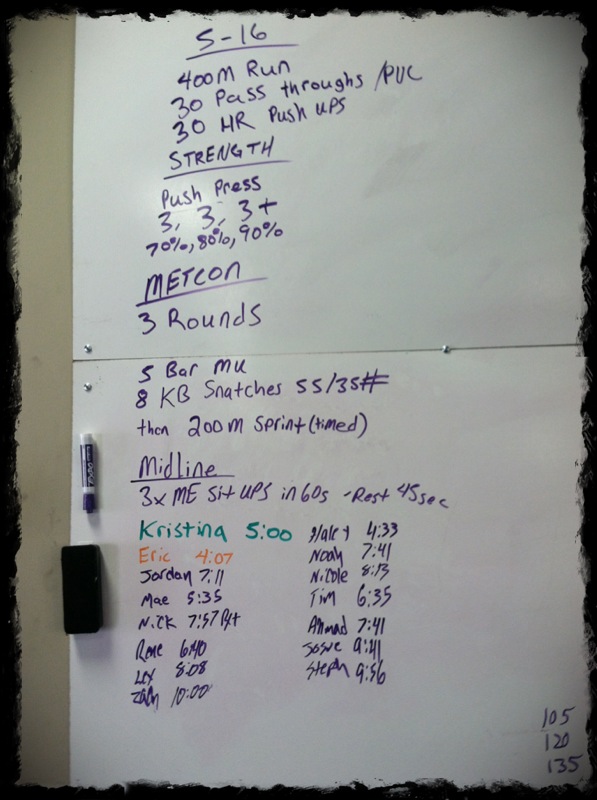 5-16
400m Run
30 Pass throughs /PVC
30 HR Push ups
STRENGTH
Push Press
3, 3, 3+
70%, 80%, 90%
METCON
3 Rounds
5 Bar mu
8 KB Snatches 55/35#
then 200m Sprint (timed)
Midline
3x ME Sit ups in 60s - Rest 45sec
Kristina 5:00
Eric 4:07
Jordan 7:11
Mae 5:35
Nick 7:57
Rene 6:40
Lex 8:08
Zach 10:00
4:33
Noah 7:41
Nicole 8:13
Tim 6:35
Ahmad 7:41
Josue 9:41
Steph 9:56
105
120
135